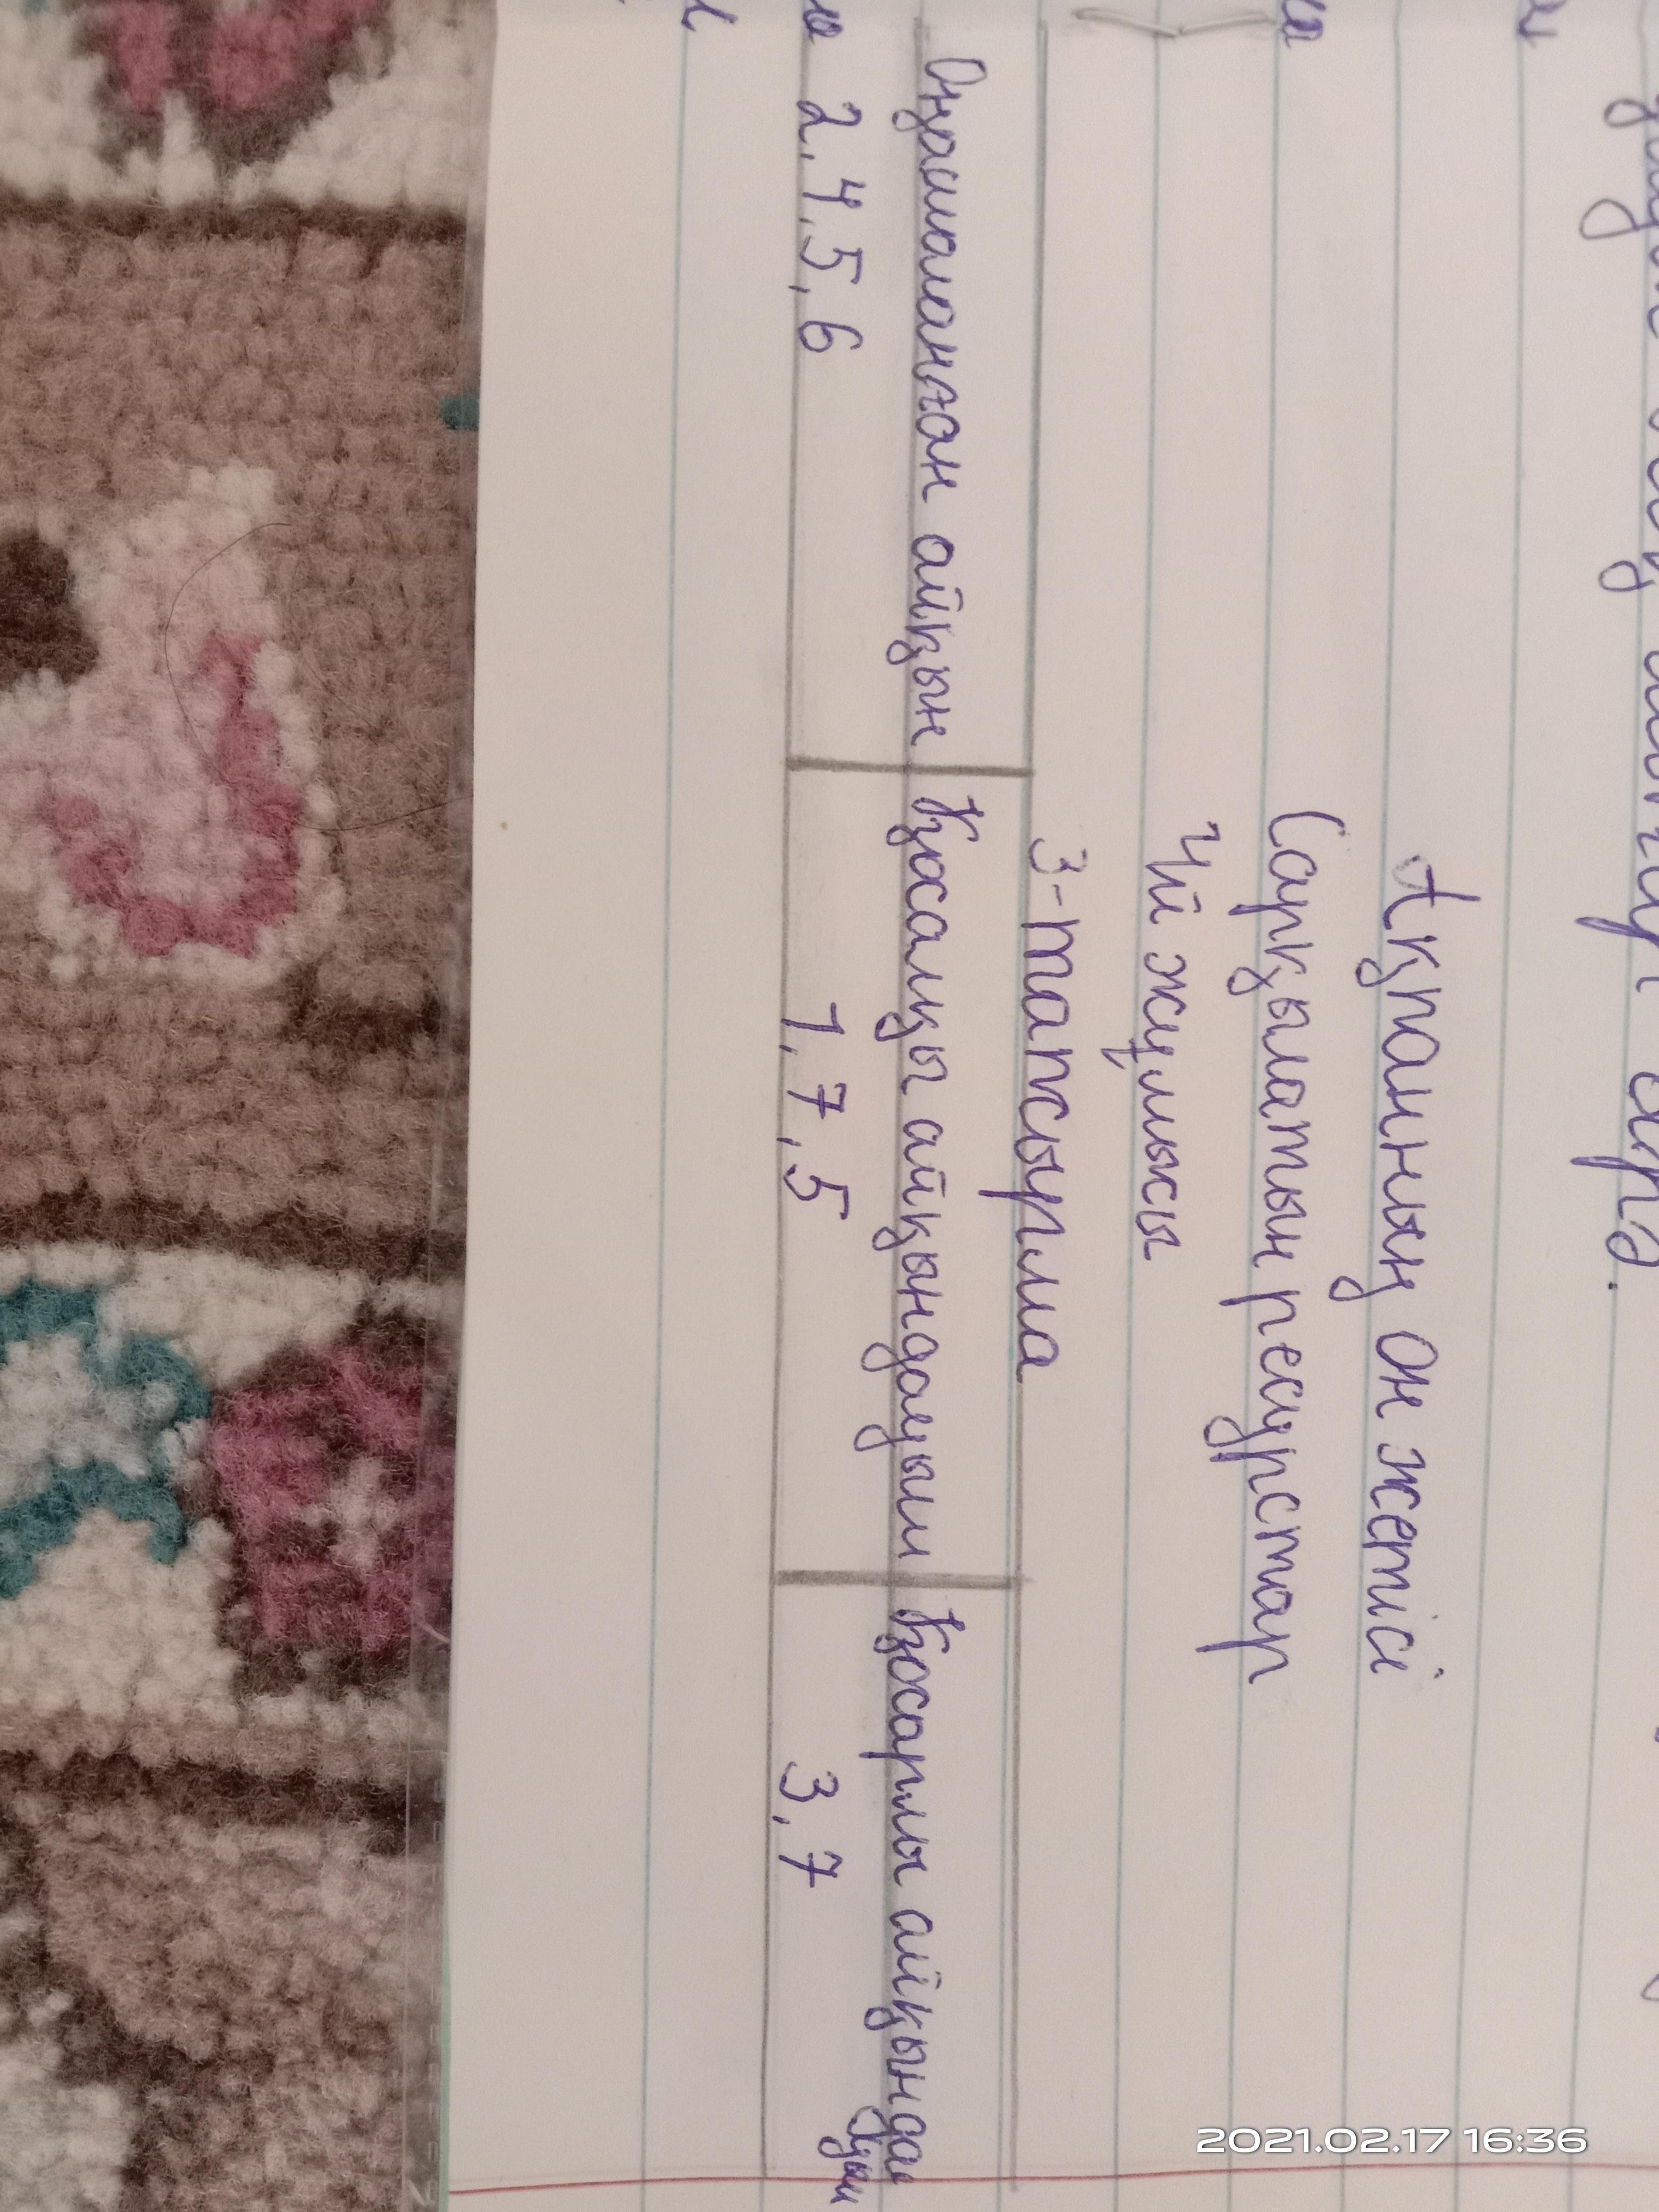 Ақпанның он жетісі
Сарқылатын ресурстар
Үй жұмысы
3-тапсырма
Оңашаланған айқын Қосалқы айқындауыш Қосарлы айқындауыш
2,4,5,6 1,7,5 3,7
2021.02.17 16:36